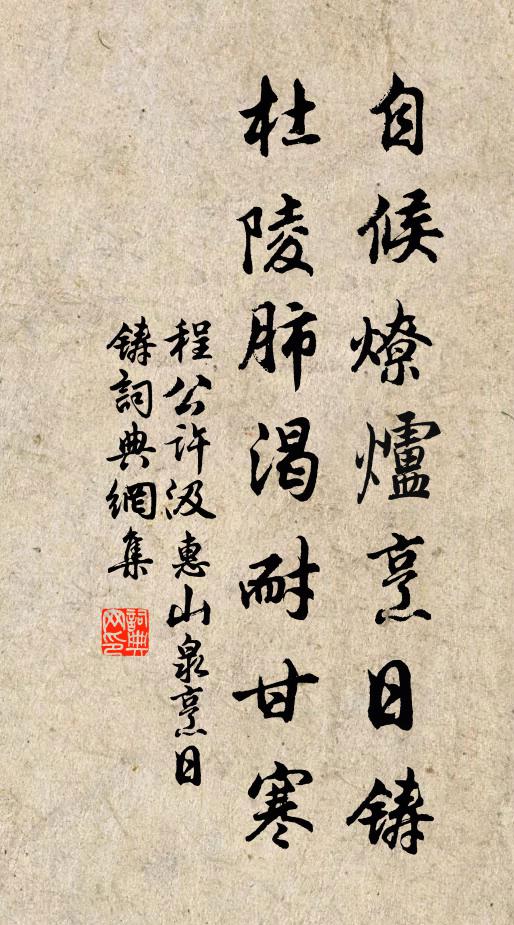 自候燎爐烹日铸
杜陵肺渴耐甘寒
程公许汲惠山泉烹日
铸詞典網集
詞典網印